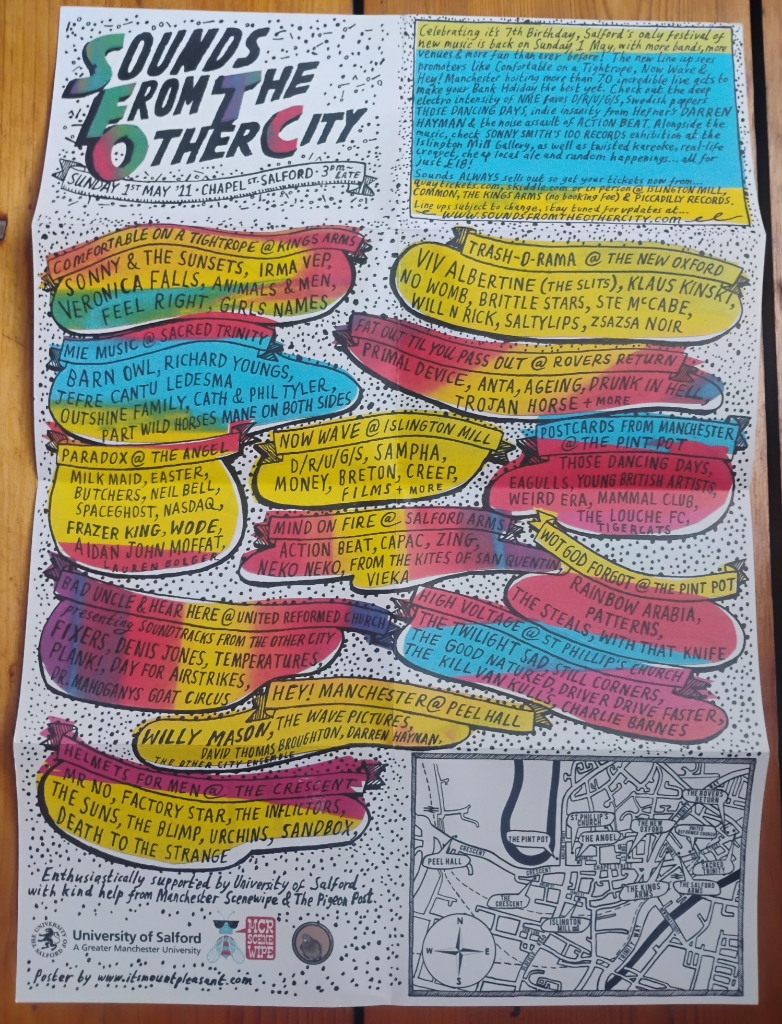 SOUNDS
FROM THE
OTHER CITY
SUNDAY 1ST MAY '11 · CHAPEL ST. SALFORD · 3PM-LATE
Celebrating it's 7th Birthday, Salford's only festival of
new music is back on Sunday 1 May, with more bands, more
venues & more fun than ever before! The new line up sees
promoters like Comfortable on a Tightrope, Now Wave &
Hey! Manchester hosting more than 70 incredible live acts to
make your Bank Holiday the best yet. Check out the deep
electro intensity of NME faves D/R/U/G/S, Swedish poppers
THOSE DANCING DAYS, indie insanity from Hefner's DARREN
HAYMAN & the noise assault of ACTION BEAT. Alongside the
music, check SONNY SMITH'S 100 RECORDS exhibition at the
Islington Mill Gallery, as well as twisted kareoke, real-life
cheap local ale and random happenings... all for
just £18!
Sounds ALWAYS sells out so get your tickets now from...
quaytickets.com, skiddle.com or in person @ ISLINGTON MILL,
COMMON, THE KINGS ARMS (no booking fee) & PICCADILLY RECORDS.
Line ups subject to change, stay tuned for updates at...
www.soundsfromtheothercity.com
COMFORTABLE ON A TIGHTROPE @ KINGS ARMS
SONNY & THE SUNSETS, IRMA VEP,
VERONICA FALLS, ANIMALS & MEN,
FEEL RIGHT, GIRLS NAMES
TRASH-O-RAMA @ THE NEW OXFORD
VIV ALBERTINE (THE SLITS), KLAUS KINSKI,
NO WOMB, BRITTLE STARS, STE McCABE,
WILL N RICK, SALTYLIPS, ZSAZSA NOIR
MIE MUSIC @ SACRED TRINITY
BARN OWL, RICHARD YOUNGS,
JEFRE CANTU LEDESMA
OUTSHINE FAMILY, CATH & PHIL TYLER,
PART WILD HORSES MANE ON BOTH SIDES
FAT OUT TIL YOU PASS OUT @ ROVERS RETURN
PRIMAL DEVICE, ANTA, AGEING, DRUNK IN HELL,
TROJAN HORSE + MORE
PARADOX @ THE ANGEL
MILK MAID, EASTER,
BUTCHERS, NEIL BELL,
SPACEGHOST, NASDAQ,
FRAZER KING, WODE,
AIDAN JOHN MOFFAT,
LAUREN BOLGER
NOW WAVE @ ISLINGTON MILL
D/R/U/G/S, SAMPHA,
MONEY, BRETON, CREEP,
FILMS + MORE
POSTCARDS FROM MANCHESTER
@ THE PINT POT
THOSE DANCING DAYS,
EAGULLS, YOUNG BRITISH ARTISTS,
WEIRD ERA, MAMMAL CLUB,
THE LOUCHE FC,
TIGERCATS
MIND ON FIRE @ SALFORD ARMS
ACTION BEAT, CAPAC, ZING,
NEKO NEKO, FROM THE KITES OF SAN QUENTIN,
VIEKA
WOT GOD FORGOT @ THE PINT POT
RAINBOW ARABIA,
PATTERNS,
THE STEALS, WITH THAT KNIFE
BAD UNCLE & HEAR HERE @ UNITED REFORMED CHURCH
presenting SOUNDTRACKS FROM THE OTHER CITY
FIXERS, DENIS JONES, TEMPERATURES,
PLANK!, DAY FOR AIRSTRIKES,
DR. MAHOGANYS GOAT CIRCUS
HIGH VOLTAGE @ ST PHILLIP'S CHURCH
THE TWILIGHT SAD, STILL CORNERS,
THE GOOD NATURED, DRIVER DRIVE FASTER,
THE KILL VAN KULLS, CHARLIE BARNES
HEY! MANCHESTER @ PEEL HALL
WILLY MASON, THE WAVE PICTURES,
DAVID THOMAS BROUGHTON, DARREN HAYMAN.
THE OTHER CITY ENSEMBLE
HELMETS FOR MEN @ THE CRESCENT
MR NO, FACTORY STAR, THE INFLICTORS,
THE SUNS, THE BLIMP, URCHINS, SANDBOX,
DEATH TO THE STRANGE
Enthusiastically supported by University of Salford
with kind help from Manchester Scenewipe & The Pigeon Post.
University of Salford
A Greater Manchester University
MCR
SCENE
WIPE
Poster by www.itsmountpleasant.com
THE ROVERS
RETURN
ST PHILLIP'S
CHURCH
THE NEW
OXFORD
UNITED
REFORMED CHURCH
THE PINT POT
THE ANGEL
PEEL HALL
CRESCENT
SACRED
TRINITY
CRESCENT
THE KINGS
ARMS
THE SALFORD
ARMS
THE
CRESCENT
ISLINGTON
MILL
N
W
E
S